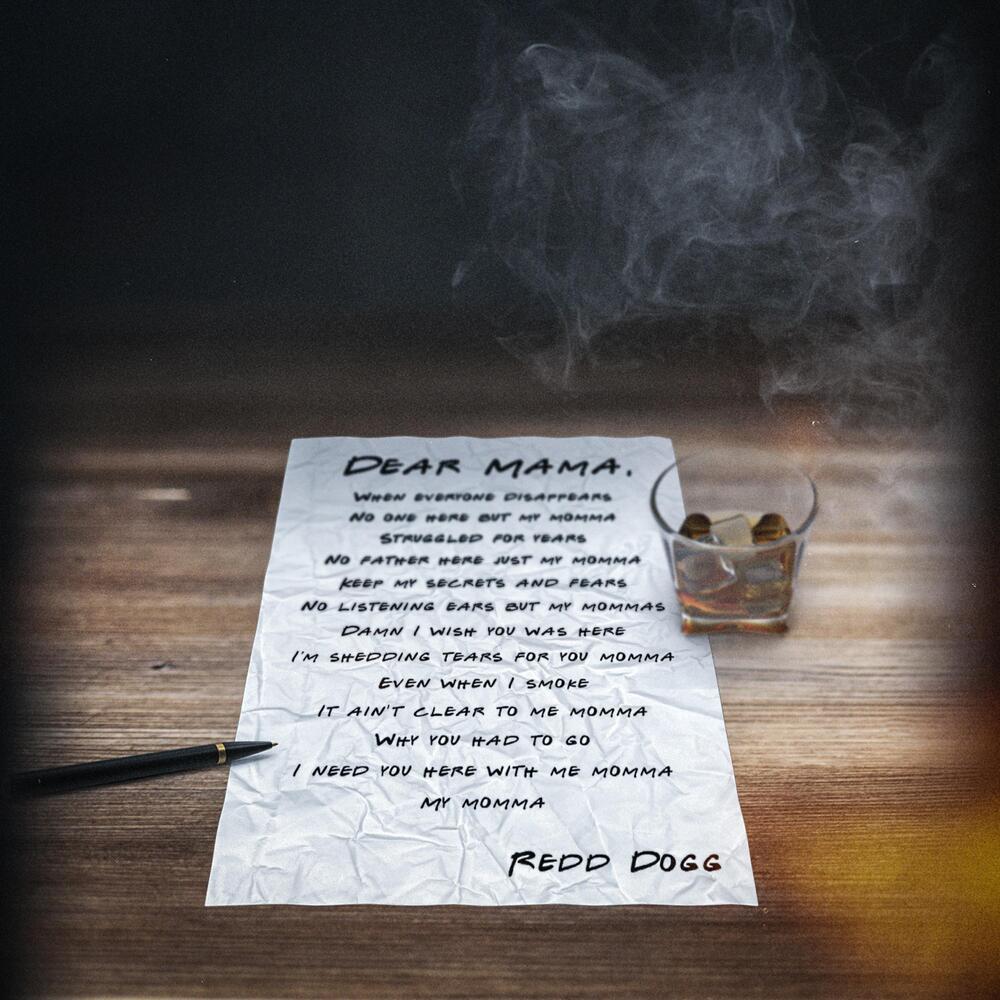 DEAR MAMA,
WHEN EVERYONE DISAPPEARS
NO ONE HERE BUT MY MOMMA
STRUGGLED FOR YEARS
NO FATHER HERE JUST MY MOMMA
KEEP MY SECRETS AND FEARS
NO LISTENING EARS BUT MY MOMMAS
DAMN I WISH YOU WAS HERE
I'M SHEDDING TEARS FOR YOU MOMMA
EVEN WHEN I SMOKE
IT AIN'T CLEAR TO ME MOMMA
WHY YOU HAD TO GO
I NEED YOU HERE WITH ME MOMMA
MY MOMMA
REDD DOGG